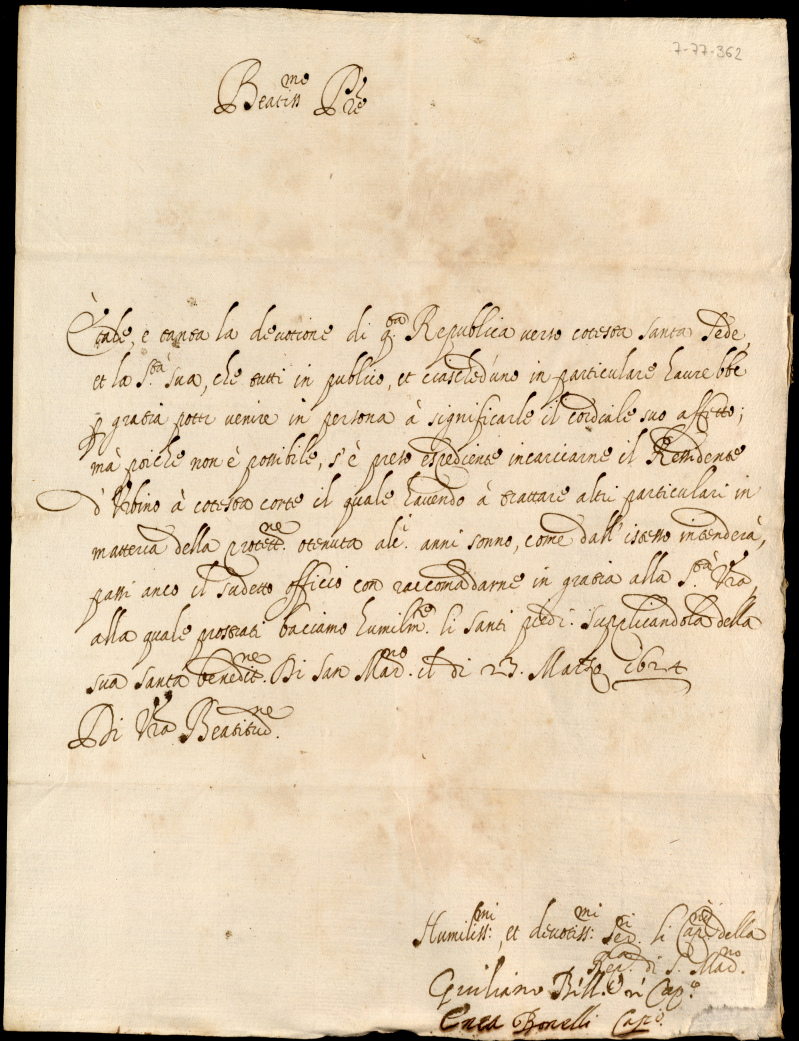 7-77-362
Beatiss.me P.re
È tale, e tanta la devotione di q.ta Republica verso cotesta Santa Sede,
et la S.tà Sua, che tutti in publico, et ciascheduno in particulare haurebbe
p gratia poter venire in persona à significarle il cordiale suo affetto;
mà poiche non è possibile, s'è preso espediente incaricarne il Residente
d'Urbino à cotesta corte il quale havendo à trattare altri particulari in
matteria della protett.ne otenuta alc. anni sonno, come dall'istesso intenderà,
passi anco il sudetto officio con raccomadarne in gratia alla S.tà V.ra,
alla quale prostrati baciamo humilm.te li santi piedi. Supplicandola della
sua santa benedit.ne. Di San Mar.no il di 23. Marzo 1624
Di V.ra Beatitud.ne.
Humiliss.mi, et devotiss.mi Ser.ri li Cap.ni della
Rep.ca di S. Mar.no.
Giuliano Cap.o
Enea Bonelli Cap.o